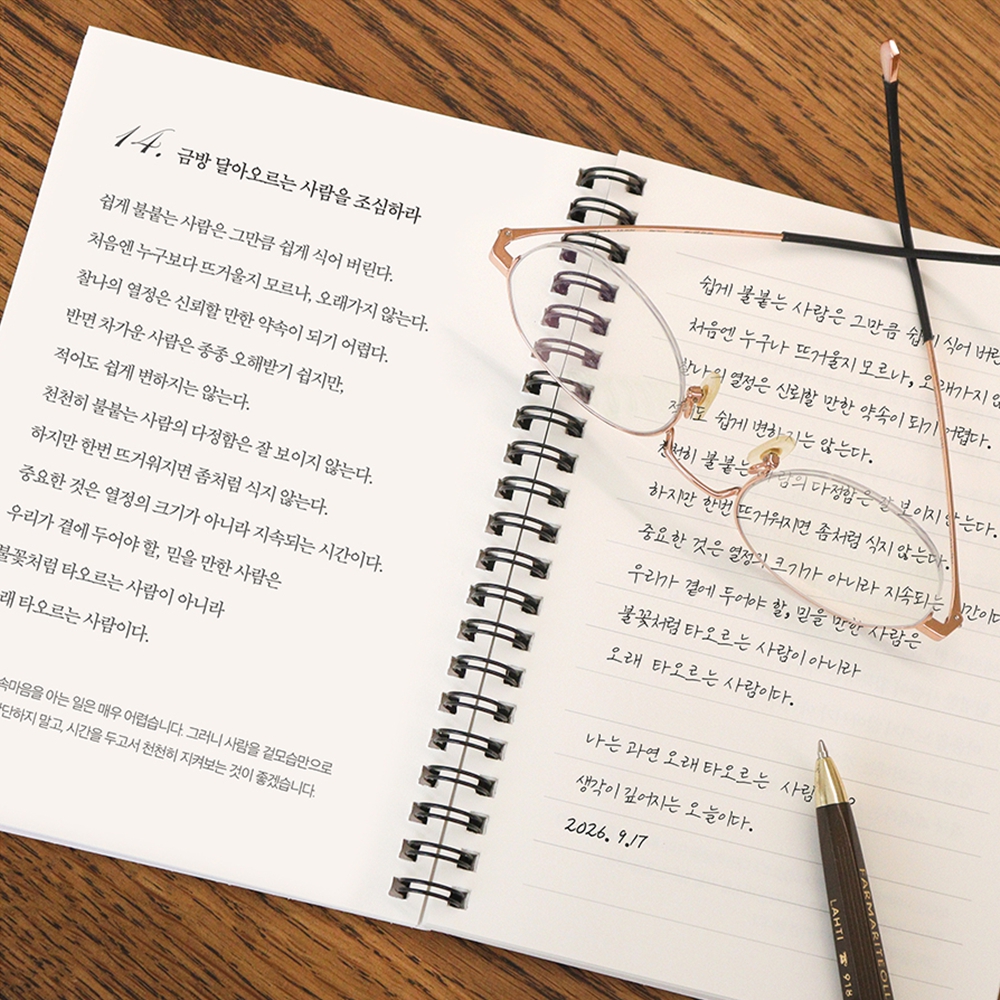 14. 금방 달아오르는 사람을 조심하라
쉽게 불붙는 사람은 그만큼 쉽게 식어 버린다.
처음엔 누구보다 뜨거울지 모르나, 오래가지 않는다.
찰나의 열정은 신뢰할 만한 약속이 되기 어렵다.
반면 차가운 사람은 종종 오해받기 쉽지만,
적어도 쉽게 변하지는 않는다.
천천히 불붙는 사람의 다정함은 잘 보이지 않는다.
하지만 한번 뜨거워지면 좀처럼 식지 않는다.
중요한 것은 열정의 크기가 아니라 지속되는 시간이다.
우리가 곁에 두어야 할, 믿을 만한 사람은
불꽃처럼 타오르는 사람이 아니라
래 타오르는 사람이다.
속마음을 아는 일은 매우 어렵습니다. 그러니 사람을 겉모습만으로
단하지 말고, 시간을 두고서 천천히 지켜보는 것이 좋겠습니다.
쉽게 불붙는 사람은 그만큼 쉽게 식어 버린
처음엔 누구나 뜨거울지 모르나, 오래가지 않
찰나의 열정은 신뢰할 만한 약속이 되기 어렵다.
적어도 쉽게 변하지는 않는다.
천천히 불붙는 사람의 다정함은 잘 보이지 않는다.
하지만 한번 뜨거워지면 좀처럼 식지 않는다.
중요한 것은 열정의 크기가 아니라 지속되는 시간이다
우리가 곁에 두어야 할, 믿을 만한 사람은
불꽃처럼 타오르는 사람이 아니라
오래 타오르는 사람이다.
나는 과연 오래 타오르는 사람
생각이 깊어지는 오늘이다.
2026. 9.17
LAHTI 918